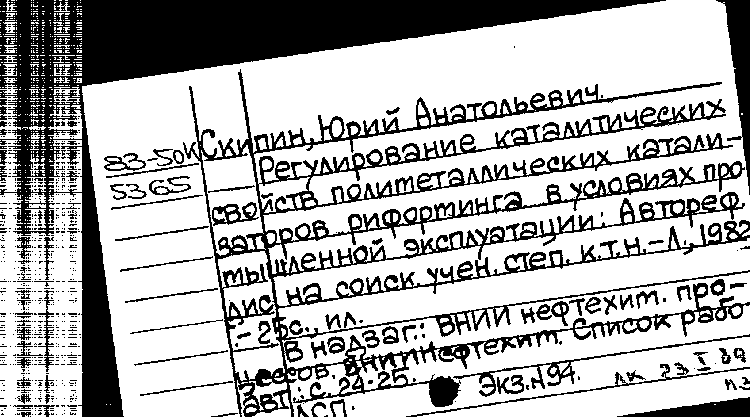 Скипин, Юрий Анатольевич.
83-50К
5365
Регулирование каталитических
свойств политеталлических катали-
заторов рифортинга в условиях про
тышленной эксплуатации: Автореф.
дис. на соиск. учен. степ. к.т.н. - Л., 1982
- 25с., ил.
В надзаг.: ВНИИ нефтехит. про-
цессов. ВНИИНефтехит. Список рабо
авт.: с. 24-25. Экз.N94.
ДСП.